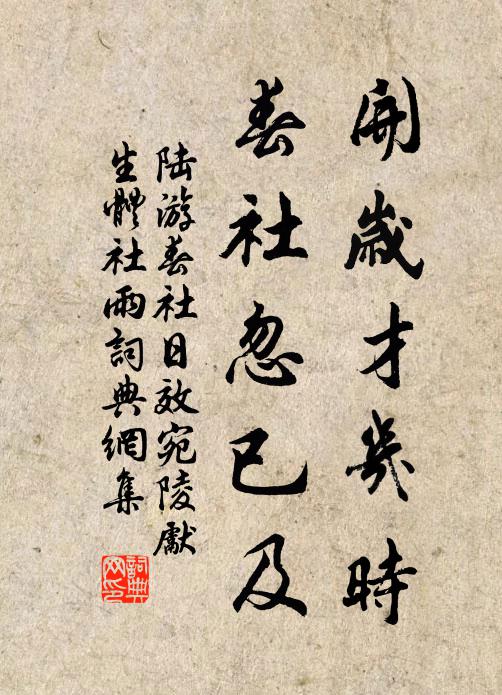 開歲才幾時
春社忽已及
陸游春社日效宛陵獻
生體社雨詞典網集
詞典網印